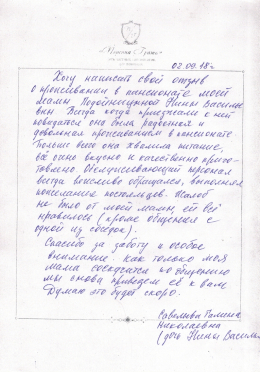 02.09.18г
Хочу написать свой отзыв
о проживании в пансионате моей
мамы Нины Василье
вны. Всегда когда приезжали с ней
повидаться она была радостная и
довольная проживанием в пансионате
Больше всего она хвалила питание,
всё очень вкусно и качественно приго-
товлено. Обслуживающий персонал
всегда вежливо обращался, выполняя
пожелание постояльцев. Жалоб
не было от моей мамы, ей всё
нравилось (кроме общения с
одной из соседок).
Спасибо за заботу и особое
внимание. Как только моя
мама соскучится по общению
мы снова приведем её к вам
Думаю это будет скоро.
Галина
Николаевна
(дочь Нины Василь